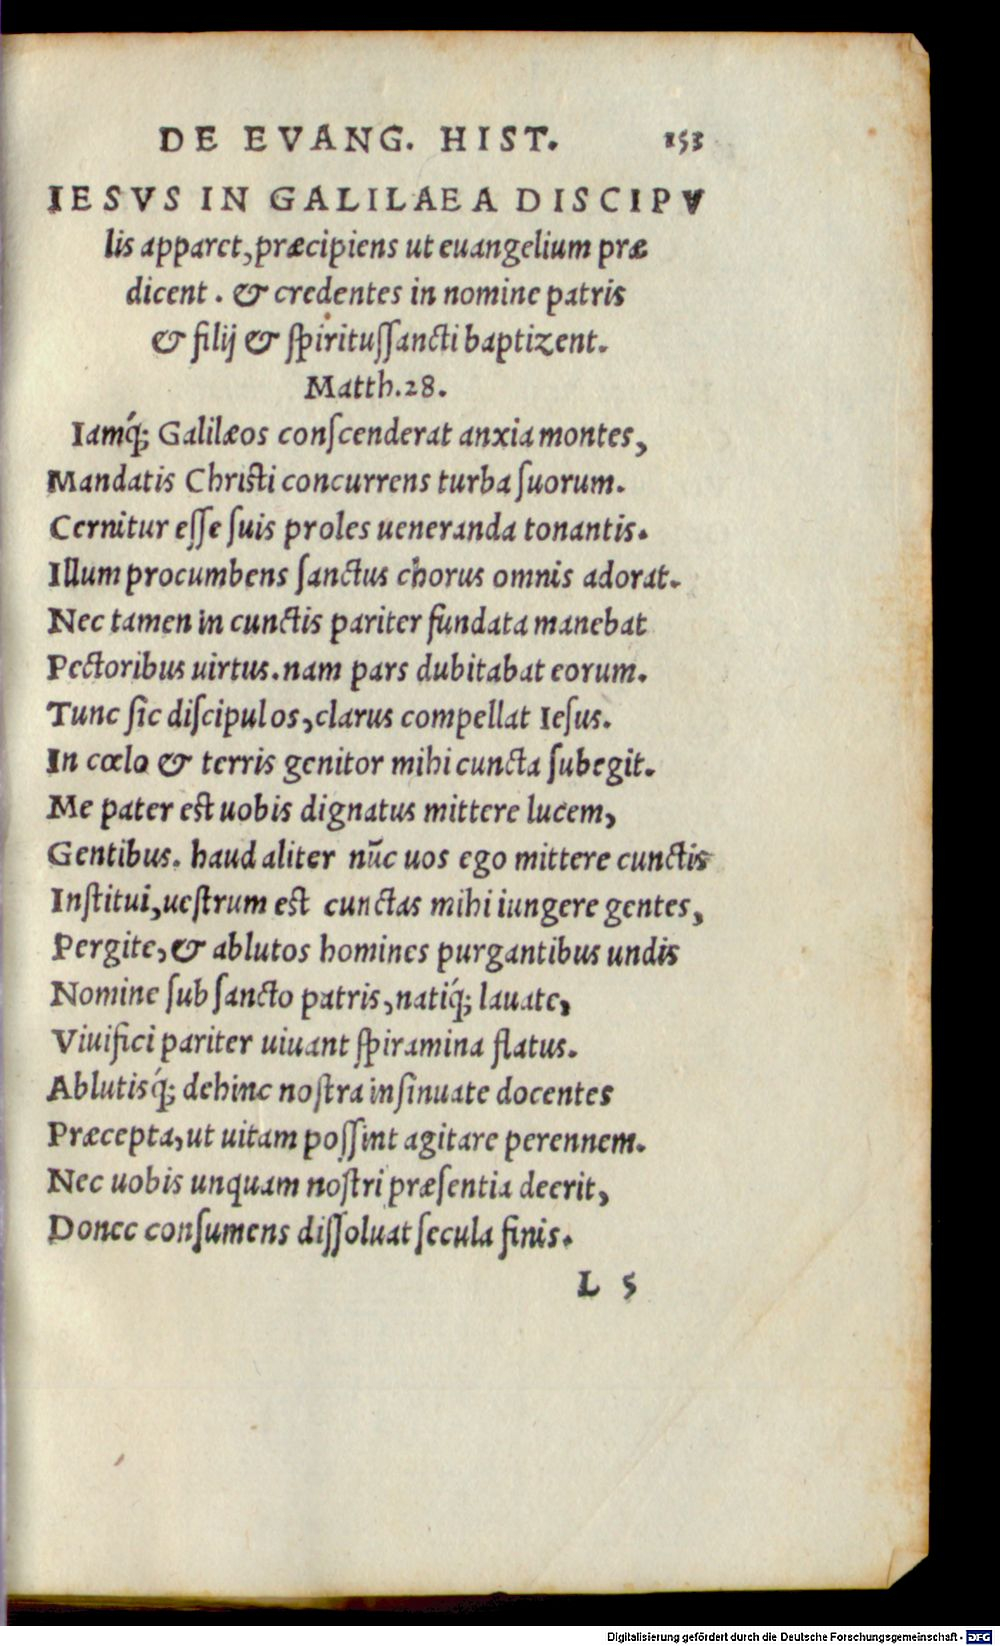 DE EVANG. HIST. 153
IESVS IN GALILAEA DISCIPV
lis apparet, præcipiens ut euangelium præ
dicent. & credentes in nomine patris
& filij & ſpirituſſancti baptizent.
Matth.28.
Iamq́; Galilæos conſcenderat anxia montes,
Mandatis Christi concurrens turba ſuorum.
Cernitur eſſe ſuis proles ueneranda tonantis.
Illum procumbens ſanctus chorus omnis adorat.
Nec tamen in cunctis pariter fundata manebat
Pectoribus uirtus. nam pars dubitabat eorum.
Tunc ſic diſcipulos, clarus compellat Ieſus.
In cœlo & terris genitor mihi cuncta ſubegit.
Me pater est uobis dignatus mittere lucem,
Gentibus. haud aliter nūc uos ego mittere cunctis
Inſtitui, ueſtrum est cunctas mihi iungere gentes,
Pergite, & ablutos homines purgantibus undis
Nomine ſub ſancto patris, natiq́; lauate,
Viuifici pariter uiuant ſpiramina flatus.
Ablutisq́; dehinc noſtra inſinuate docentes
Præcepta, ut uitam poſſint agitare perennem.
Nec uobis unquam noſtri præſentia deerit,
Donec conſumens diſſoluat ſecula finis.
L 5
Digitalisierung gefördert durch die Deutsche Forschungsgemeinschaft - DFG